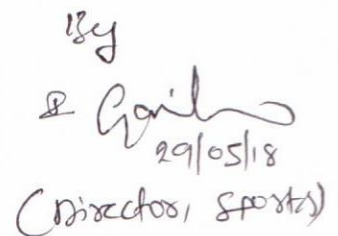 By
29/05/18
(Director, Sports)